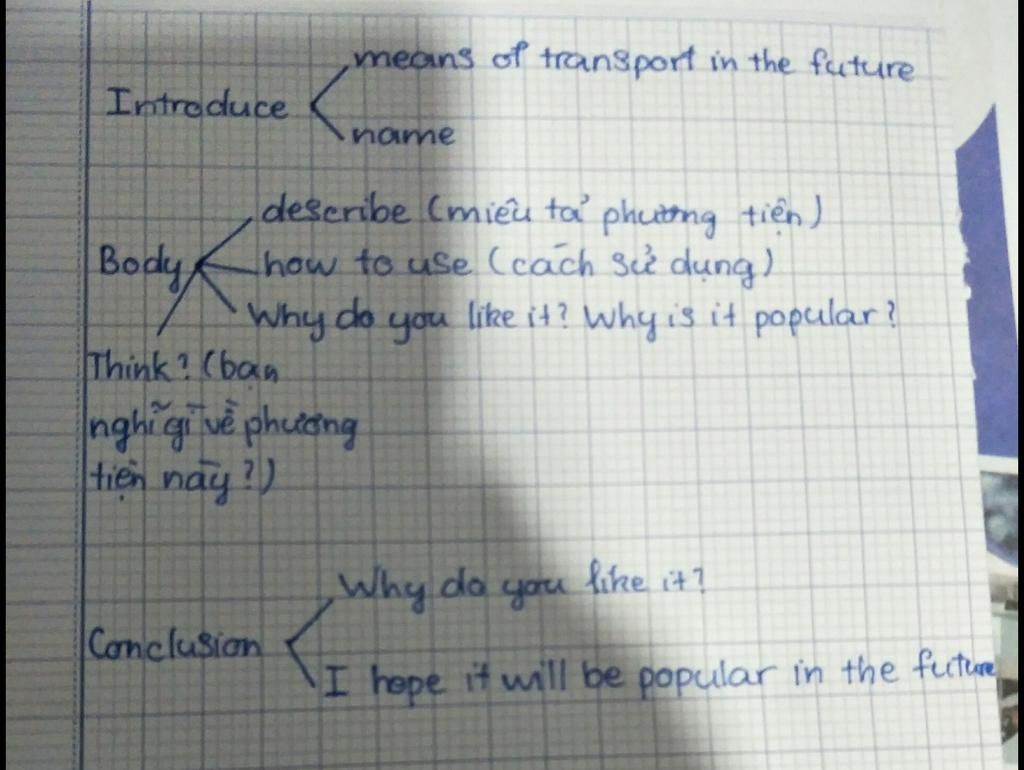 means of transport in the future
Introduce
name
describe (miêu tả phương tiện)
Body
how to use (cách sử dụng)
Why do you like it? Why is it popular?
Think? (bạn
nghĩ gì về phương
tiện này?)
Why do you like it?
Conclusion
I hope it will be popular in the future